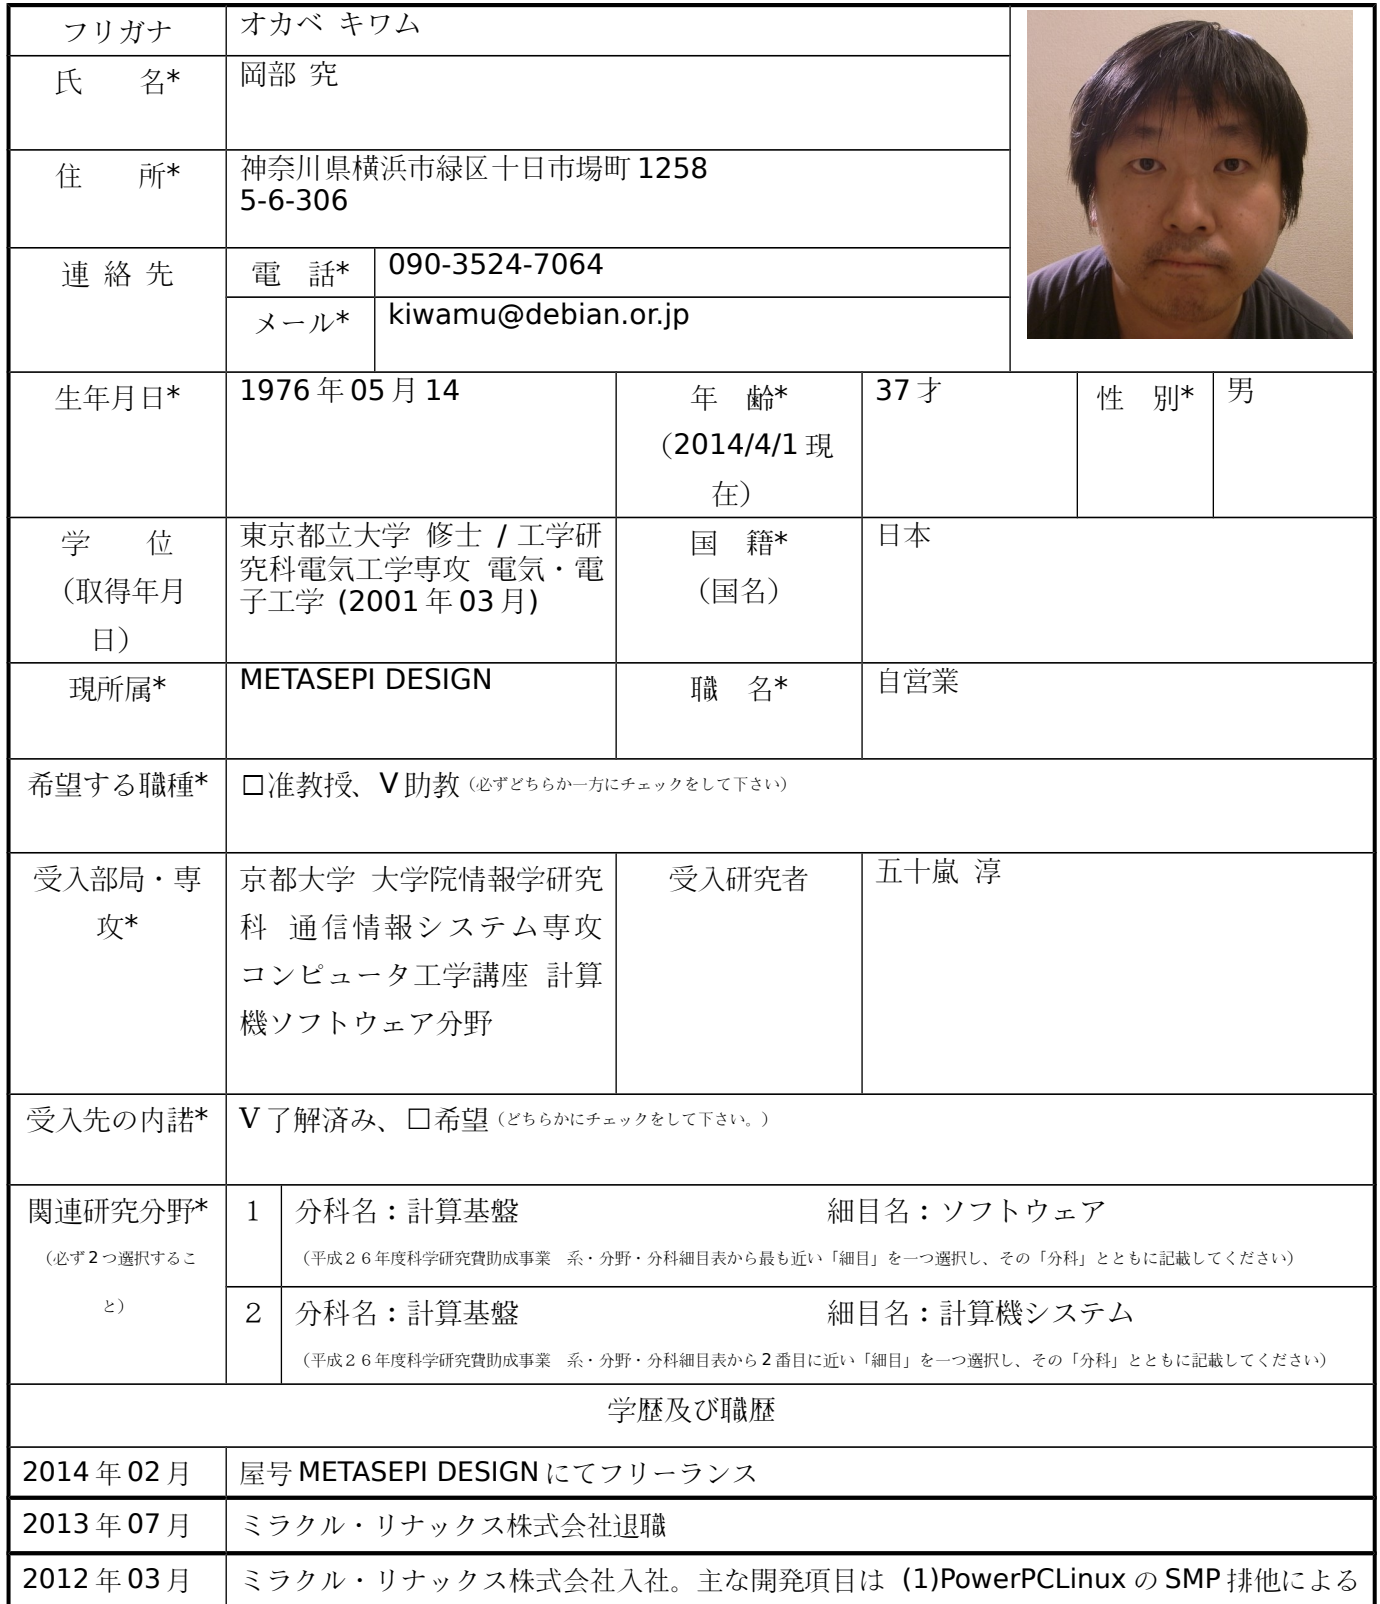 フリガナ
オカベ キワム
氏　名*
岡部 究
住　所*
神奈川県横浜市緑区十日市場町 1258
5-6-306
連 絡 先
電　話*
090-3524-7064
メール*
kiwamu@debian.or.jp
生年月日*
1976 年 05 月 14
年　齢*
（2014/4/1 現
在）
37 才
性　別*
男
学　位
（取得年月
日）
東京都立大学 修士 / 工学研
究科電気工学専攻 電気・電
子工学 (2001 年 03 月)
国　籍*
（国名）
日本
現所属*
METASEPI DESIGN
職　名*
自営業
希望する職種*
□准教授、V 助教（必ずどちらか一方にチェックをして下さい）
受入部局・専
攻*
京都大学 大学院情報学研究
科 通信情報システム専攻
コンピュータ工学講座 計算
機ソフトウェア分野
受入研究者
五十嵐 淳
受入先の内諾*
V 了解済み、□希望（どちらかにチェックをして下さい。）
関連研究分野*
（必ず 2 つ選択するこ
と）
1
分科名：計算基盤　細目名：ソフトウェア
（平成２６年度科学研究費助成事業　系・分野・分科細目表から最も近い「細目」を一つ選択し、その「分科」とともに記載してください）
２
分科名：計算基盤　細目名：計算機システム
（平成２６年度科学研究費助成事業　系・分野・分科細目表から 2 番目に近い「細目」を一つ選択し、その「分科」とともに記載してください）
学歴及び職歴
2014 年 02 月
屋号 METASEPI DESIGN にてフリーランス
2013 年 07 月
ミラクル・リナックス株式会社退職
2012 年 03 月
ミラクル・リナックス株式会社入社。主な開発項目は (1)PowerPCLinux の SMP 排他による